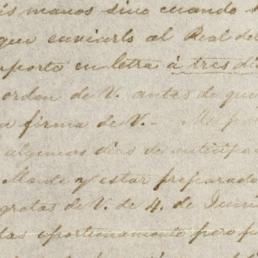 is manos sino cuando
que enviarlo al Real de
mporte en letra á tres di
orden de V. antes de que
a firma de V.-
algunos dias de anticipa
y estar preparado
gratas de V. de 4. de Juni
das oportunamente pero